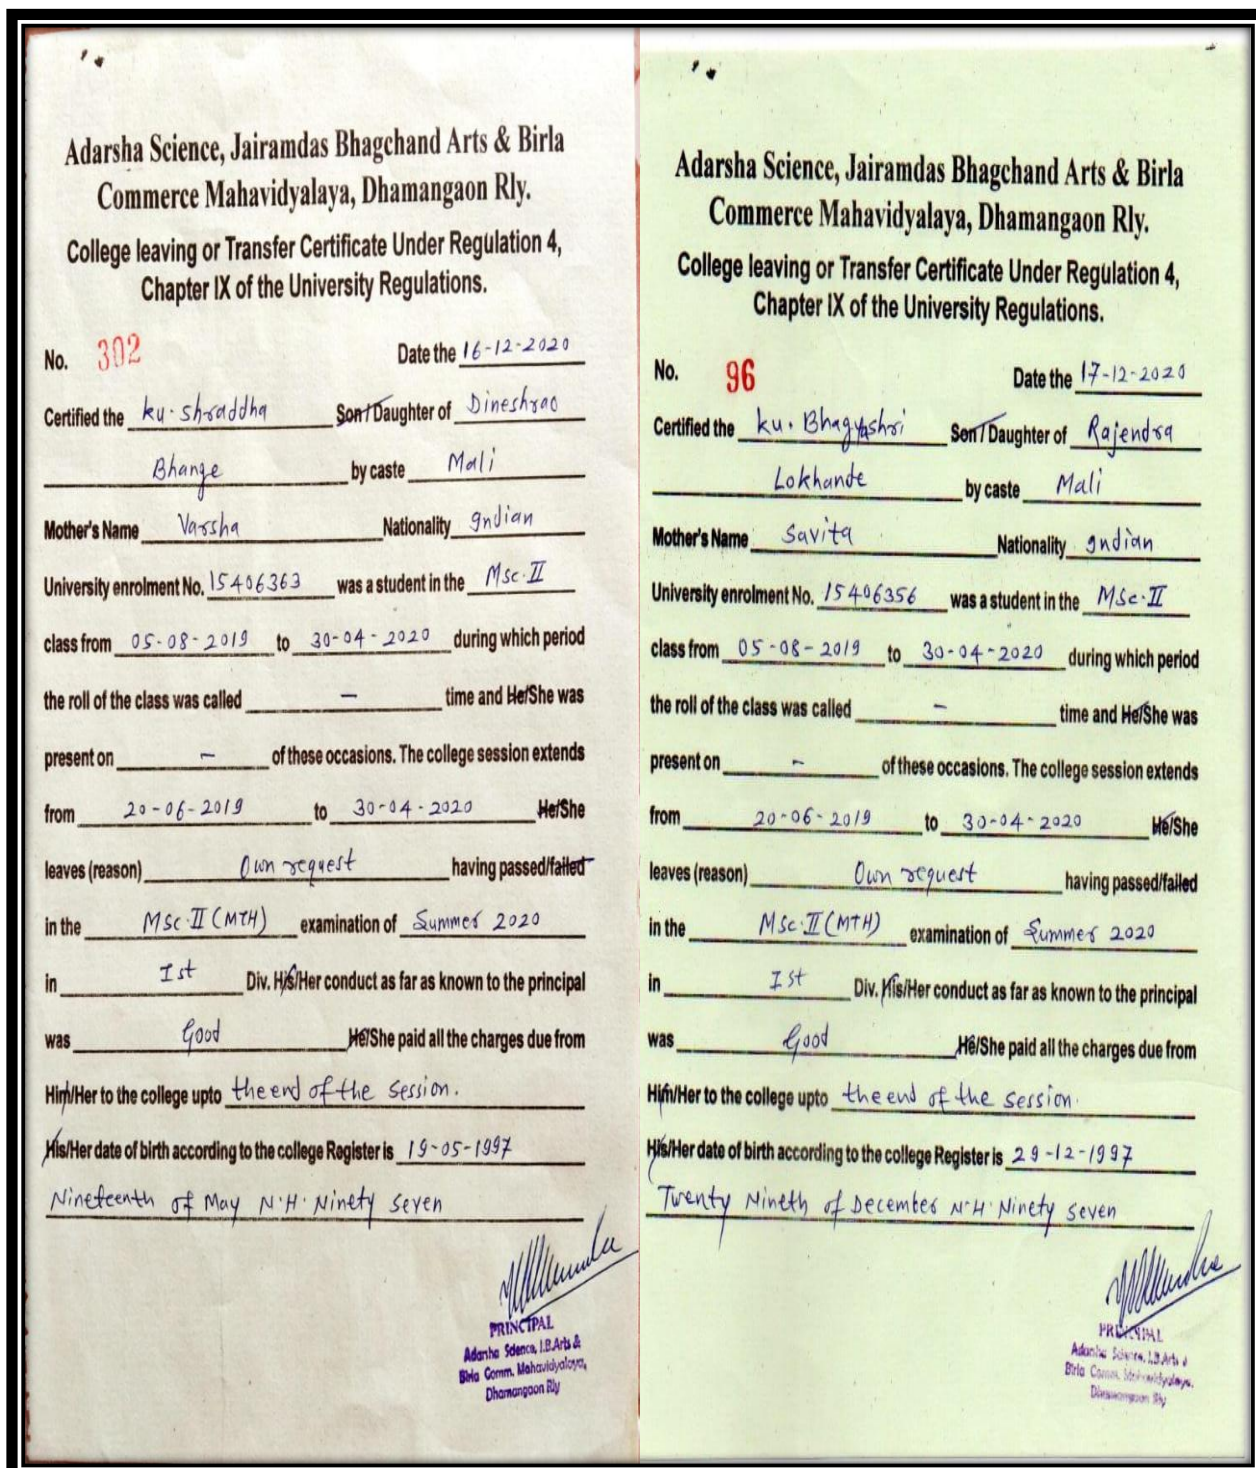 Adarsha Science, Jairamdas Bhagchand Arts & Birla
Commerce Mahavidyalaya, Dhamangaon Rly.
College leaving or Transfer Certificate Under Regulation 4,
Chapter IX of the University Regulations.
No. 302 Date the 16-12-2020
Certified the ku. shraddha Son/Daughter of Dineshrao
Bhange by caste Mali
Mother's Name Varsha Nationality Indian
University enrolment No. 15406363 was a student in the Msc.II
class from 05-08-2019 to 30-04-2020 during which period
the roll of the class was called - time and He/She was
present on - of these occasions. The college session extends
from 20-06-2019 to 30-04-2020 He/She
leaves (reason) Own request having passed/failed
in the MSc.II (MTH) examination of Summer 2020
in Ist Div. His/Her conduct as far as known to the principal
was Good He/She paid all the charges due from
Him/Her to the college upto the end of the session.
His/Her date of birth according to the college Register is 19-05-1997
Nineteenth of May N.H. Ninety seven
PRINCIPAL
Adarsha Science, J.B.Arts &
Birla Comm. Mahavidyalaya,
Dhamangaon Rly
Adarsha Science, Jairamdas Bhagchand Arts & Birla
Commerce Mahavidyalaya, Dhamangaon Rly.
College leaving or Transfer Certificate Under Regulation 4,
Chapter IX of the University Regulations.
No. 96 Date the 17-12-2020
Certified the ku. Bhagyashri Son/Daughter of Rajendra
Lokhande by caste Mali
Mother's Name Savita Nationality Indian
University enrolment No. 15406356 was a student in the MSc.II
class from 05-08-2019 to 30-04-2020 during which period
the roll of the class was called - time and He/She was
present on - of these occasions. The college session extends
from 20-06-2019 to 30-04-2020 He/She
leaves (reason) Own request having passed/failed
in the MSc.II (MTH) examination of Summer 2020
in Ist Div. His/Her conduct as far as known to the principal
was Good He/She paid all the charges due from
Him/Her to the college upto the end of the session.
His/Her date of birth according to the college Register is 29-12-1997
Twenty Nineth of December N.H. Ninety seven
PRINCIPAL
Adarsha Science, J.B.Arts &
Birla Comm. Mahavidyalaya,
Dhamangaon Rly